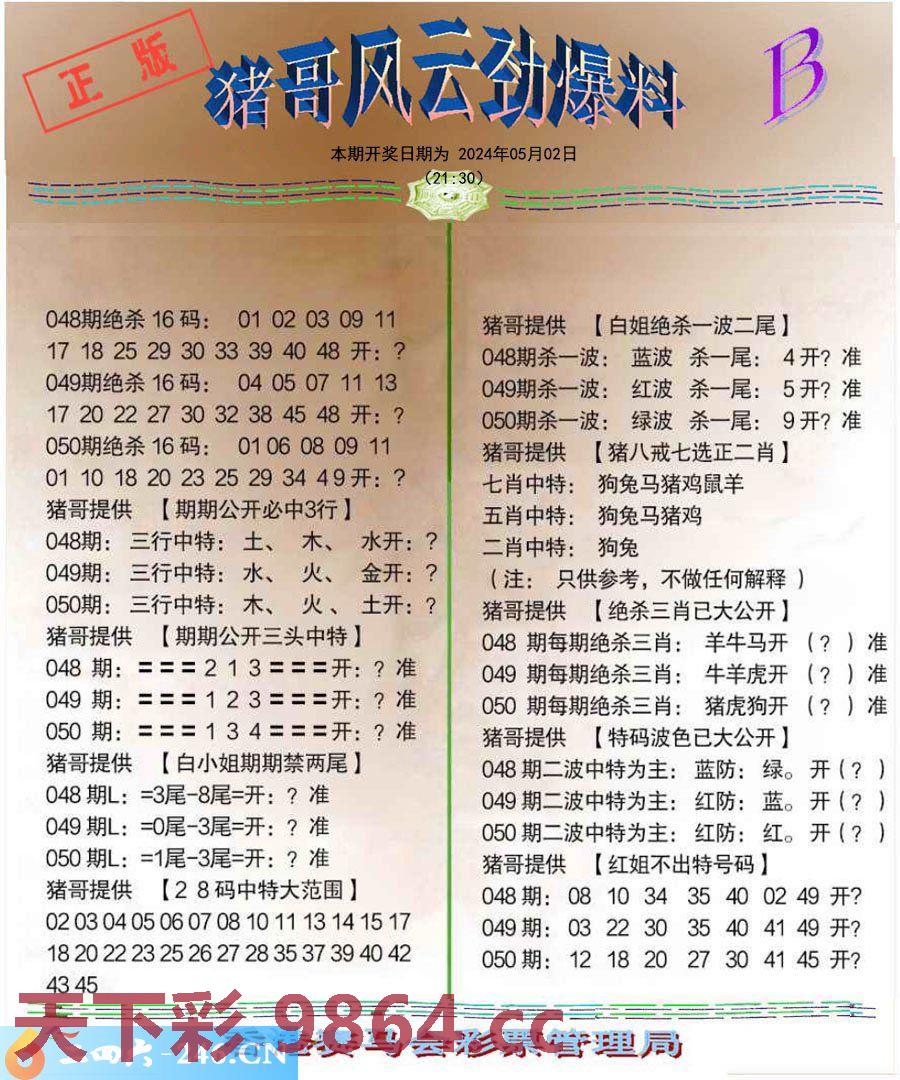 正版
猪哥风云劲爆料
B
本期开奖日期为 2024年05月02日
(21:30)
048期绝杀 16 码： 01 02 03 09 11
17 18 25 29 30 33 39 40 48 开：?
049期绝杀 16 码： 04 05 07 11 13
17 20 22 27 30 32 38 45 48 开：?
050期绝杀 16 码： 01 06 08 09 11
01 10 18 20 23 25 29 34 4 9 开：?
猪哥提供 【期期公开必中3行】
048期： 三行中特： 土、 木、 水开：?
049期： 三行中特： 水、 火、 金开：?
050期： 三行中特： 木、 火 、 土开：?
猪哥提供 【期期公开三头中特】
048 期：=== 2 1 3 ===开：? 准
049 期：=== 1 2 3 ===开：? 准
050 期：=== 1 3 4 ===开：? 准
猪哥提供 【白小姐期期禁两尾】
048 期L：=3尾-8尾=开：? 准
049 期L：=0尾-3尾=开：? 准
050 期L：=1尾-3尾=开：? 准
猪哥提供 【2 8 码中特大范围】
02 03 04 05 06 07 08 10 11 13 14 15 17
18 20 22 23 25 26 27 28 35 37 39 40 42
43 45
猪哥提供 【白姐绝杀一波二尾】
048期杀一波： 蓝波 杀一尾： 4 开? 准
049期杀一波： 红波 杀一尾： 5 开? 准
050期杀一波： 绿波 杀一尾： 9 开? 准
猪哥提供 【猪八戒七选正二肖】
七肖中特： 狗兔马猪鸡鼠羊
五肖中特： 狗兔马猪鸡
二肖中特： 狗兔
（注： 只供参考，不做任何解释 ）
猪哥提供 【绝杀三肖已大公开】
048 期每期绝杀三肖： 羊牛马开 （? ）准
049 期每期绝杀三肖： 牛羊虎开 （? ）准
050 期每期绝杀三肖： 猪虎狗开 （? ）准
猪哥提供 【特码波色已大公开】
048 期二波中特为主： 蓝防： 绿。 开（? ）
049 期二波中特为主： 红防： 蓝。 开（? ）
050 期二波中特为主： 红防： 红。 开（? ）
猪哥提供 【红姐不出特号码】
048 期： 08 10 34 35 40 02 49 开?
049 期： 03 22 30 35 40 41 49 开?
050 期： 12 18 20 27 30 41 45 开?
天下彩 9864.cc
二四六 -246.CN
赛马会彩票管理局